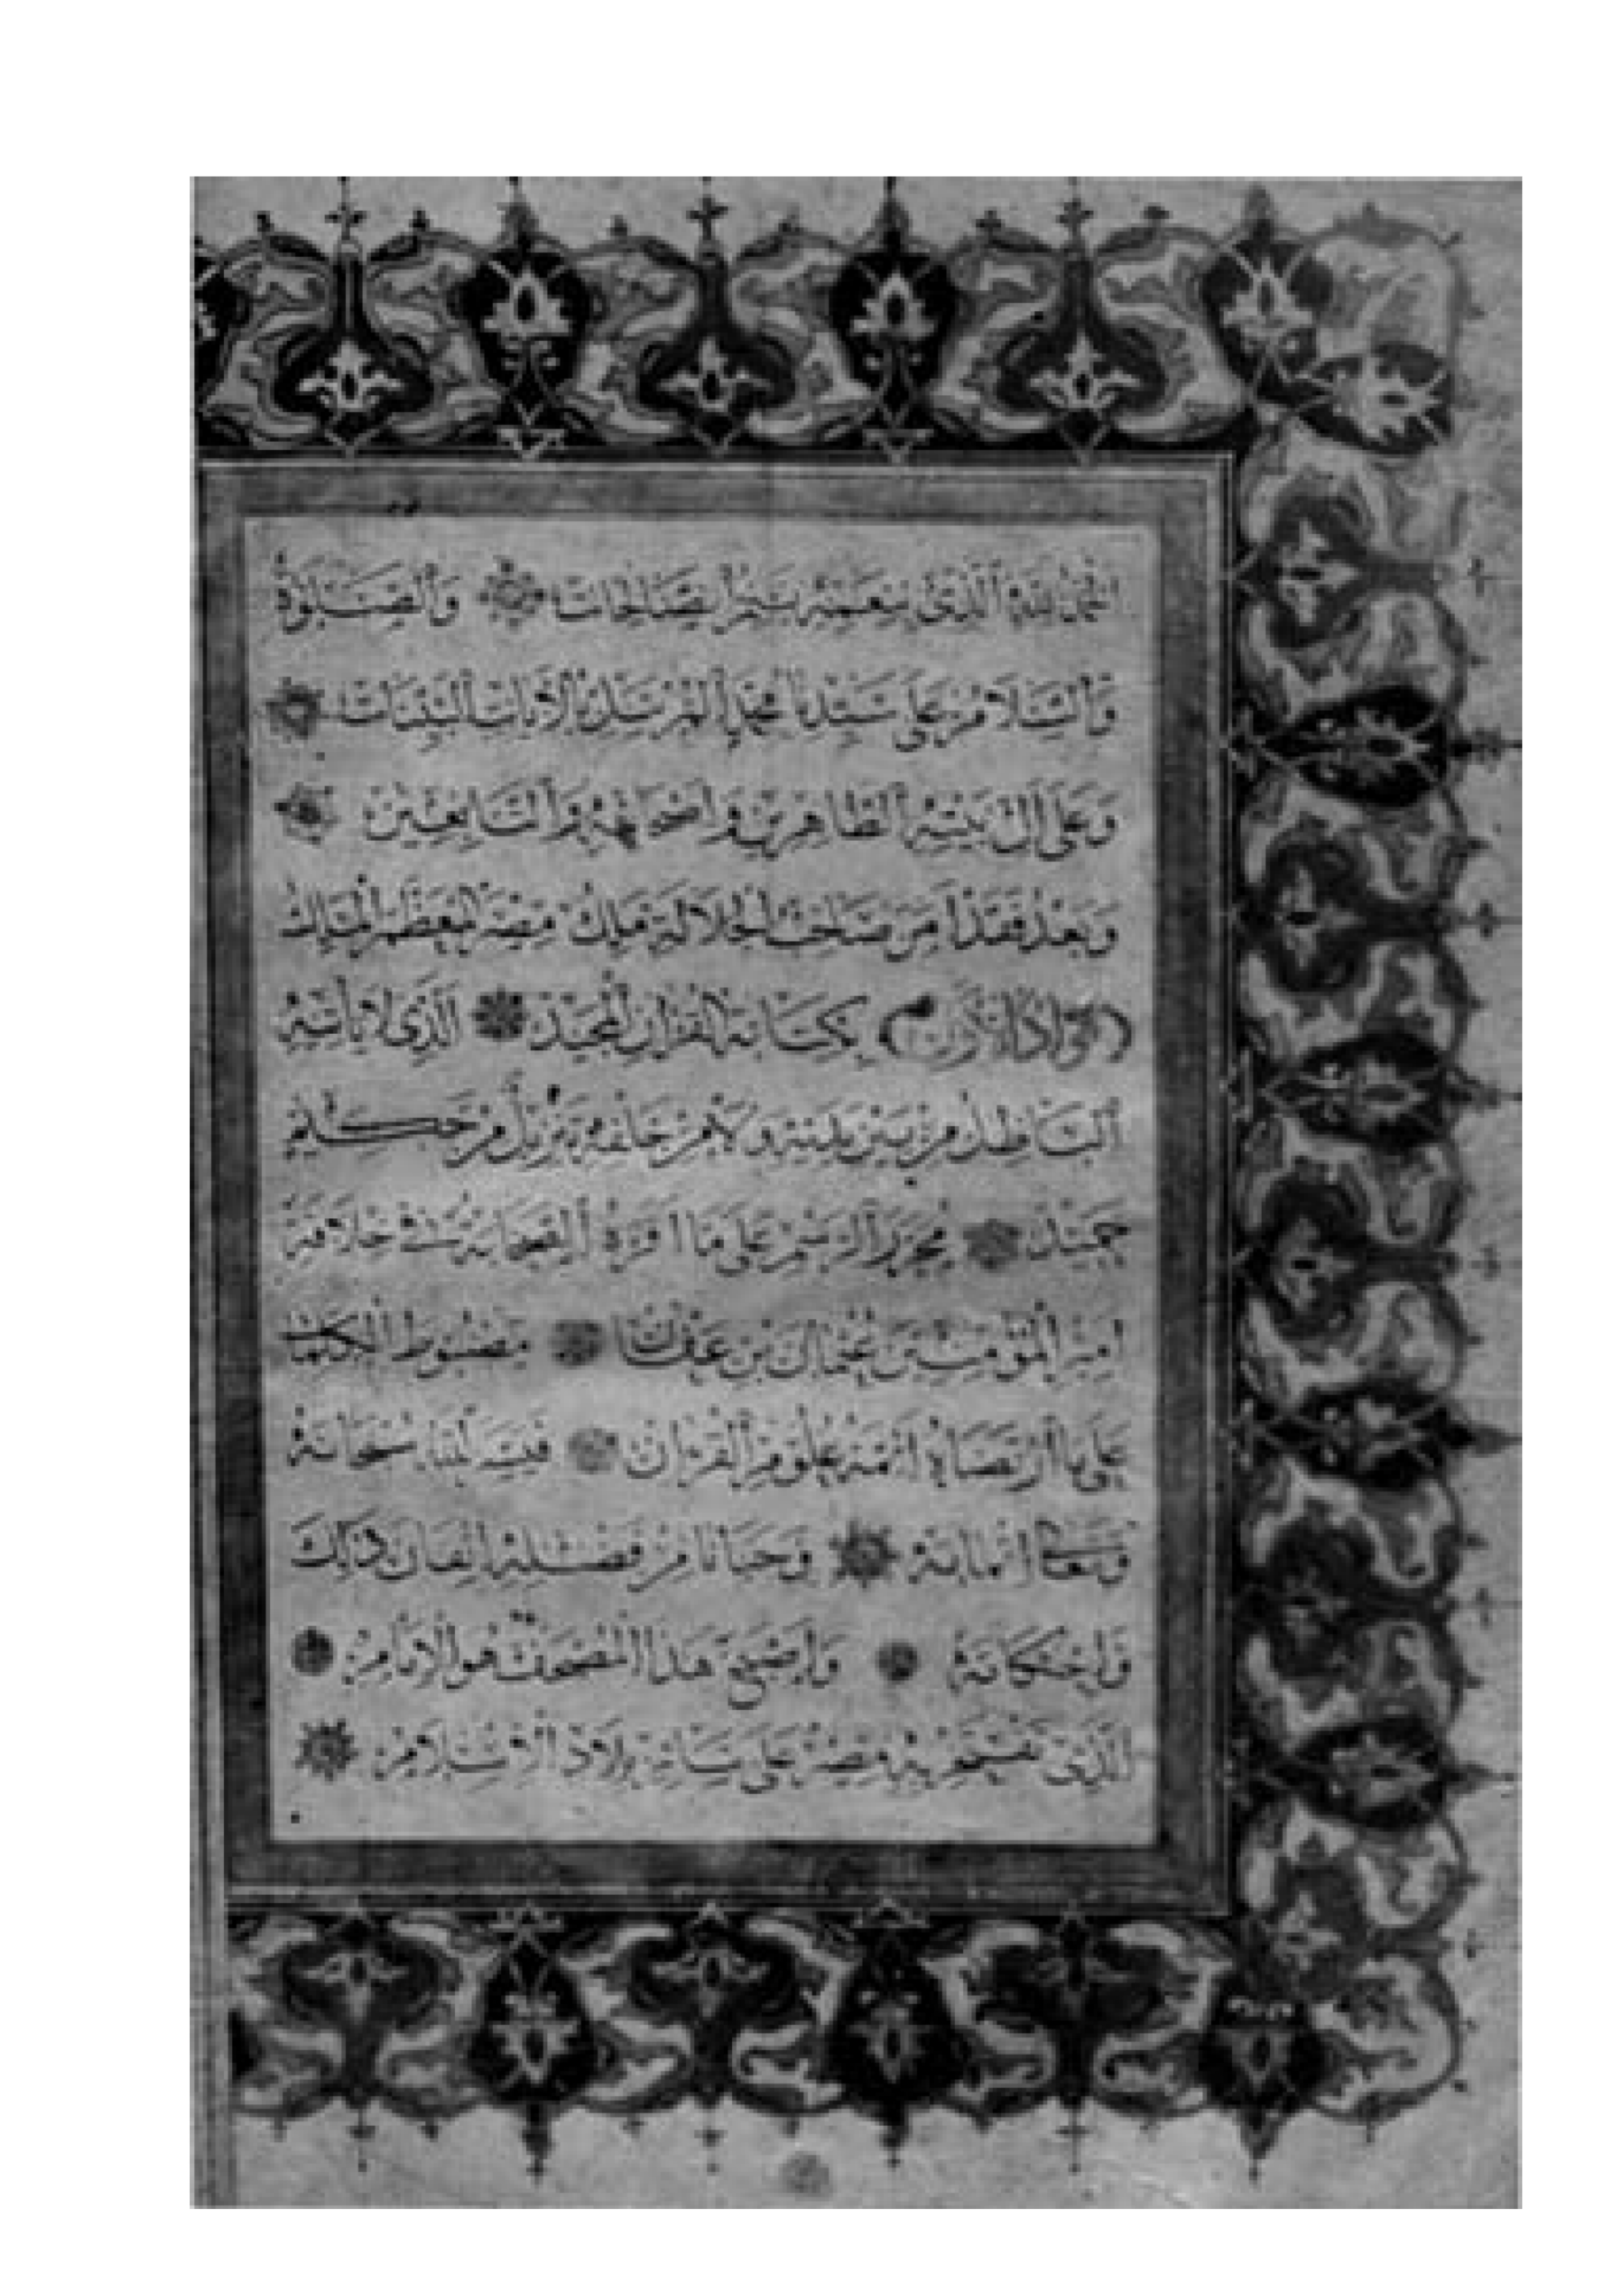 الحمد لله الذي بنعمته تتم الصالحات والصلوة
والسلام على سيدنا محمد المرسل بالآيات البينات
وعلى آل بيته الطاهرين وأصحابه والتابعين
وبعد فقد أمر صاحب الجلالة ملك مصر المعظم الملك
(فؤاد الأول) بكتابة القرآن المجيد الذي لا يأتيه
الباطل من بين يديه ولا من خلفه تنزيل من حكيم
حميد محرر الرسم على ما أقره الصحابة في خلافة
أمير المؤمنين عثمان بن عفان مضبوط الكلمات
على ما ارتضاه أئمة علوم القرآن فيسر لنا سبحانه
وتعالى إتمامه وحبانا من فضله إتقان ذلك
وإحكامه وأصبح هذا المصحف هو الإمام
الذي تفتخر به مصر على سائر بلاد الإسلام